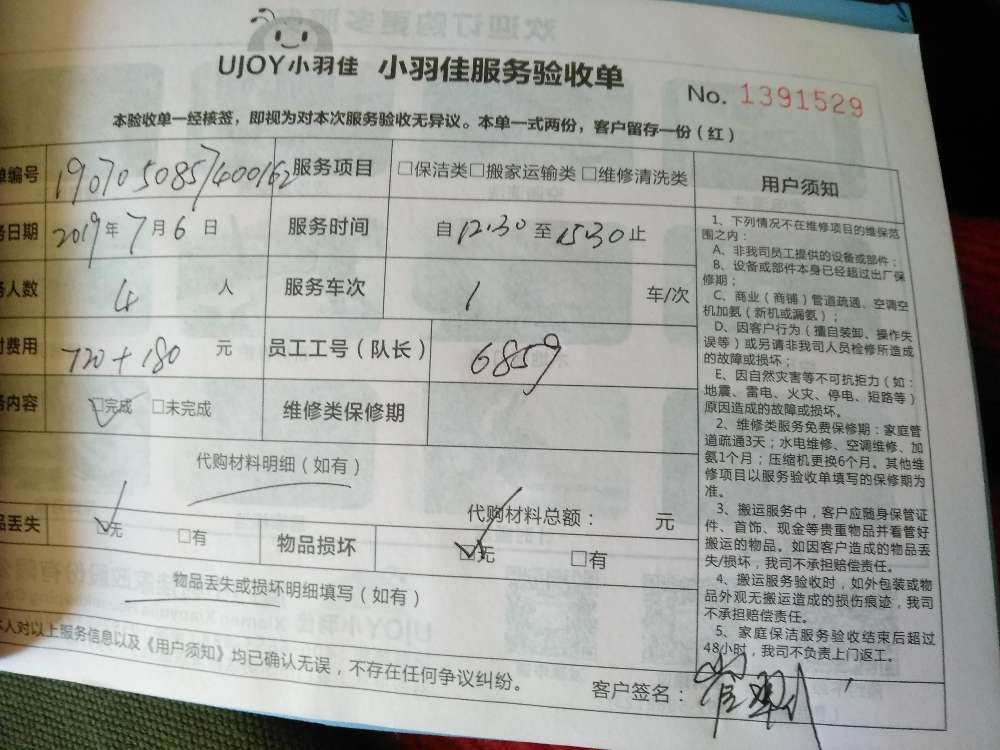 UJOY小羽佳 小羽佳服务验收单
No. 1391529
本验收单一经核签，即视为对本次服务验收无异议。本单一式两份，客户留存一份（红）
单编号 190705085740016​2 服务项目 □保洁类□搬家运输类 □维修清洗类
务日期 2019年7月6日 服务时间 自12.30至15.30止
务人数 4 人 服务车次 1 车/次
付费用 720+180 元 员工工号（队长） 6859
务内容 □完成 □未完成 维修类保修期
代购材料明细（如有）
代购材料总额： 元
品丢失 □无 □有 物品损坏 □无 □有
物品丢失或损坏明细填写（如有）
本人对以上服务信息以及《用户须知》均已确认无误，不存在任何争议纠纷。
客户签名：
用户须知
1、下列情况不在维修项目的维保范
围之内：
A、非我司员工提供的设备或部件；
B、设备或部件本身已经超过出厂保
修期；
C、商业（商铺）管道疏通、空调空
机加氨（新机或漏氨）；
D、因客户行为（擅自装卸、操作失
误等）或另请非我司人员检修所造成
的故障或损坏；
E、因自然灾害等不可抗拒力（如：
地震、雷电、火灾、停电、短路等）
原因造成的故障或损坏。
2、维修类服务免费保修期：家庭管
道疏通3天；水电维修、空调维修、加
氨1个月；压缩机更换6个月。其他维
修项目以服务验收单填写的保修期为
准。
3、搬运服务中，客户应随身保管证
件、首饰、现金等贵重物品并看管好
搬运的物品。如因客户造成的物品丢
失/损坏，我司不承担赔偿责任。
4、搬运服务验收时，如外包装或物
品外观无搬运造成的损伤痕迹，我司
不承担赔偿责任。
5、家庭保洁服务验收结束后超过
48小时，我司不负责上门返工。